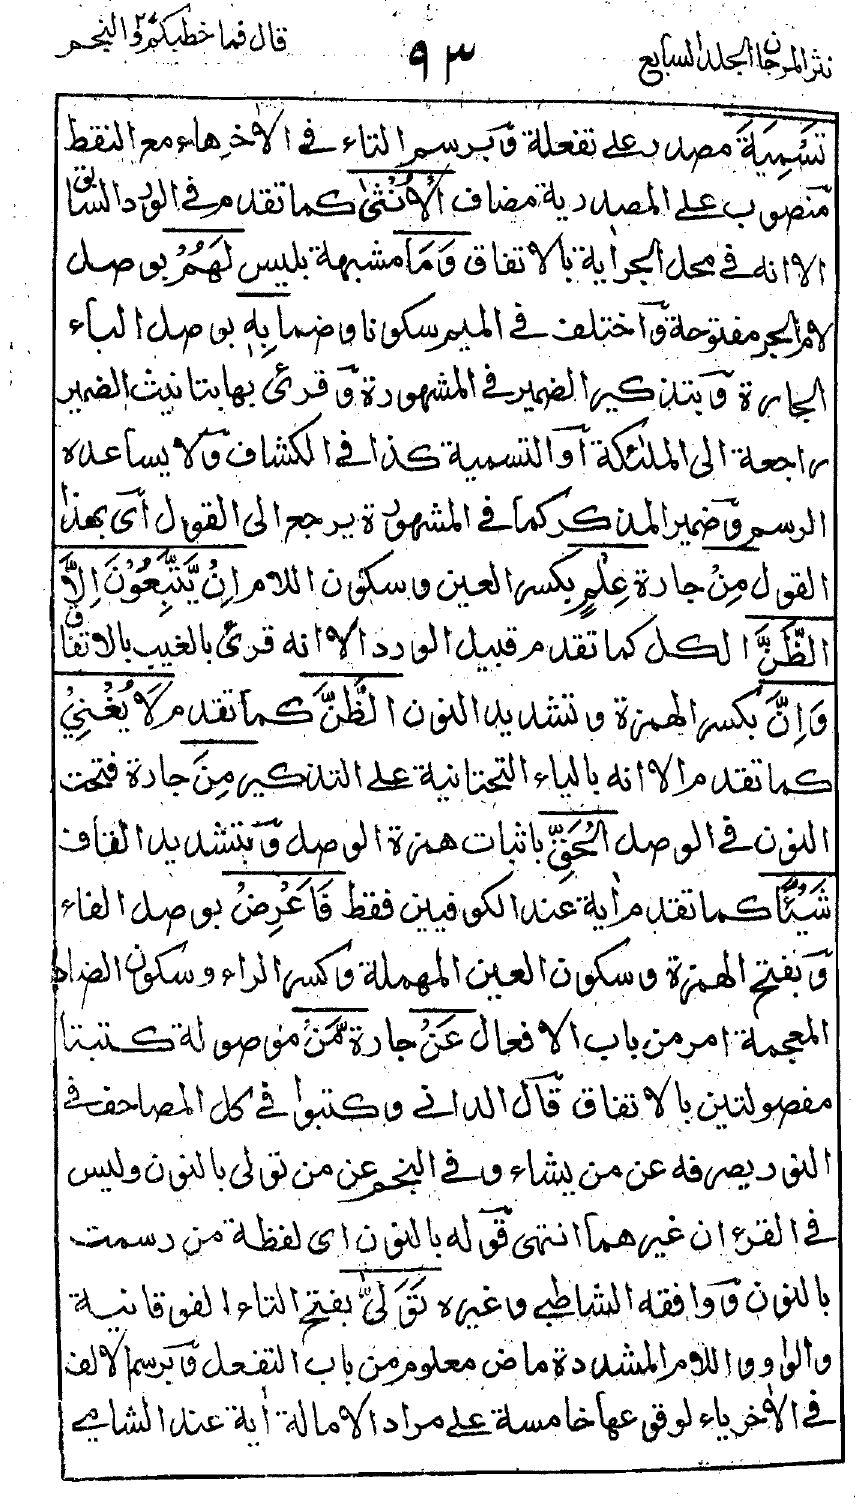 نثر المرجان الجلد السابع
٩٣
قال فما خطبكم ٢٧ والنجم
تَسْمِيَةَ مصدر على تفعلة وبرسم التاء في الاٰخر هاء مع النقط
منصوب على المصدرية مضاف الْاُنْثٰى كما تقدم في الورد السابق
الا انه في محل الجر اٰية بالاتفاق وَمَا مشبهة بليس لَهُمْ بوصل
لام الجر مفتوحة واختلف في الميم سكونا وضما بِهٖ بوصل الباء
الجارة وبتذكير الضمير في المشهورة وقرئ بها بتانيث الضمير
راجعة الى الملٰئكة او التسمية كذا في الكشاف ولا يساعده
الرسم وضمير المذكر كما في المشهورة يرجع الى القول اى بهذا
القول مِنْ جارة عِلْمٍ بكسر العين وسكون اللام اِنْ يَّتَّبِعُوْنَ اِلَّا
الظَّنَّ الكل كما تقدم قبيل الورد الا انه قرئ بالغيب بالاتفاق
وَاِنَّ بكسر الهمزة وتشديد النون الظَّنَّ كما تقدم لَا يُغْنِيْ
كما تقدم الا انه بالياء التحتانية على التذكير مِنَ جارة فتحت
النون في الوصل الْحَقِّ باثبات همزة الوصل وبتشديد القاف
شَيْئًا كما تقدم اٰية عند الكوفيين فقط فَاَعْرِضْ بوصل الفاء
وبفتح الهمزة وسكون العين المهملة وكسر الراء وسكون الضاد
المعجمة امر من باب الافعال عَنْ جارة مَّنْ موصولة كتبتا
مفصولتين بالاتفاق قال الدانى وكتبوا في كل المصاحف في
النور يصرفه عن من يشاء وفي النجم عن من تولى بالنون وليس
في القرءان غيرهما انتهى قوله بالنون اى لفظة من رسمت
بالنون ووافقه الشاطبي وغيره تَوَلّٰى بفتح التاء الفوقانية
والواو واللام المشددة ماض معلوم من باب التفعل وبرسم الالف
في الاٰخر ياء لوقوعها خامسة على مراد الامالة اٰية عند الشامي